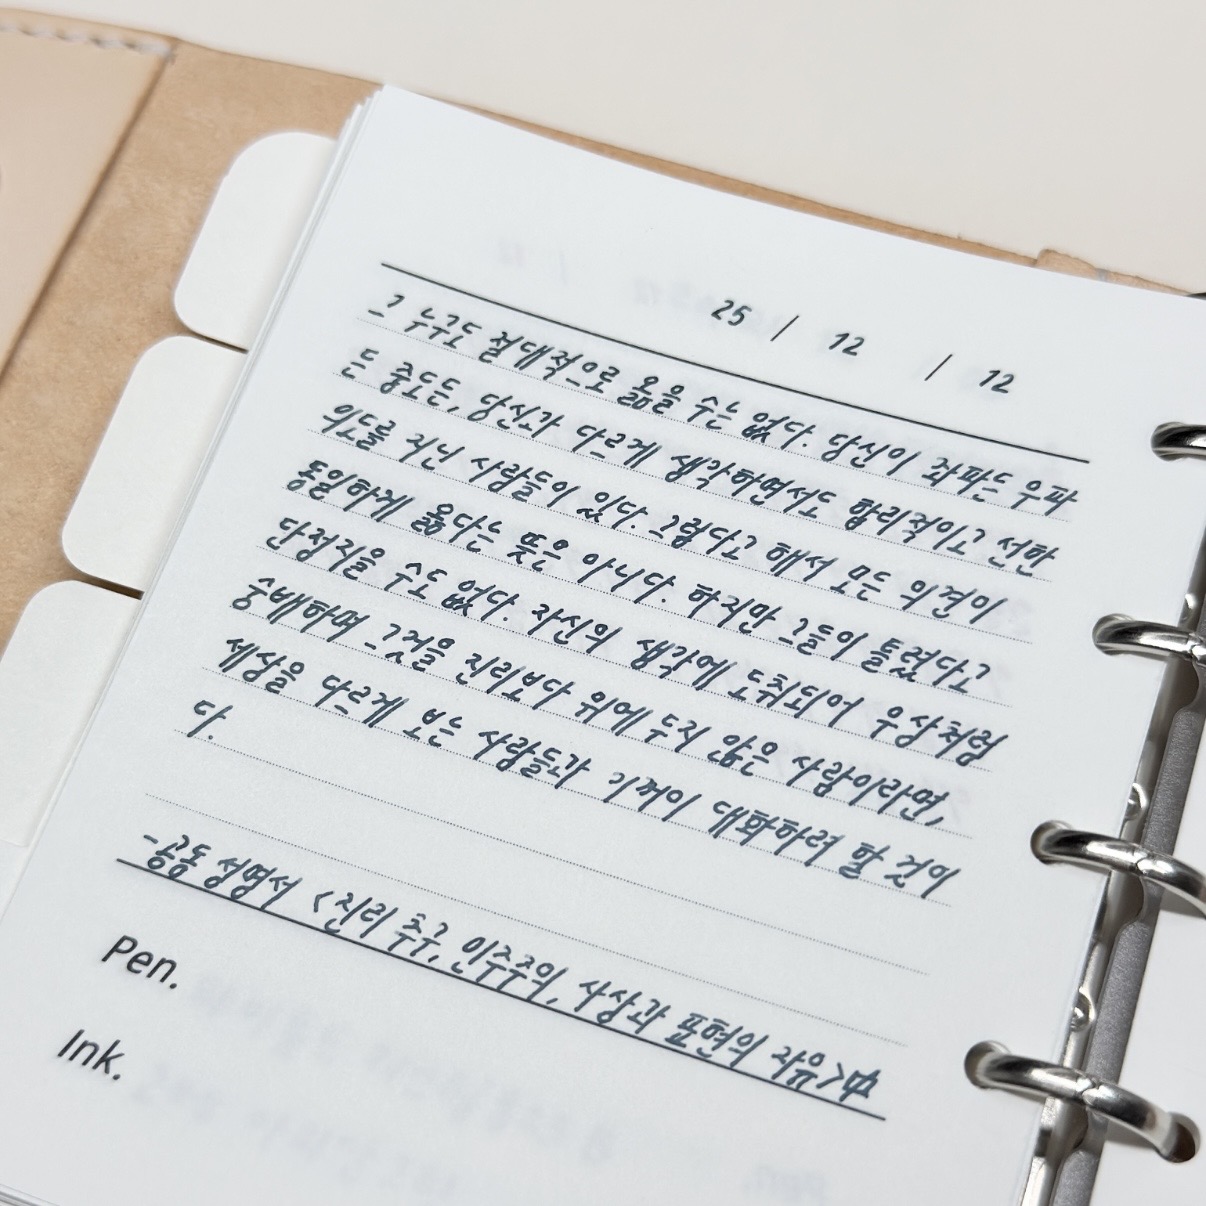 25 / 12 / 12
그 누구도 절대적으로 옳을 수는 없다. 당신이 좌파든 우파
든 중도든, 당신과 다르게 생각하면서도 합리적이고 선한
의도를 지닌 사람들이 있다. 그렇다고 해서 모든 의견이
동일하게 옳다는 뜻은 아니다. 하지만 그들이 틀렸다고
단정지을 수도 없다. 자신의 생각에 도취되어 우상처럼
숭배하며 그것을 진리보다 위에 두지 않은 사람이라면,
세상을 다르게 보는 사람들과 기꺼이 대화하려 할 것이
다.
-공동 성명서 <진리 추구, 민주주의, 사상과 표현의 자유>中
Pen.
Ink.